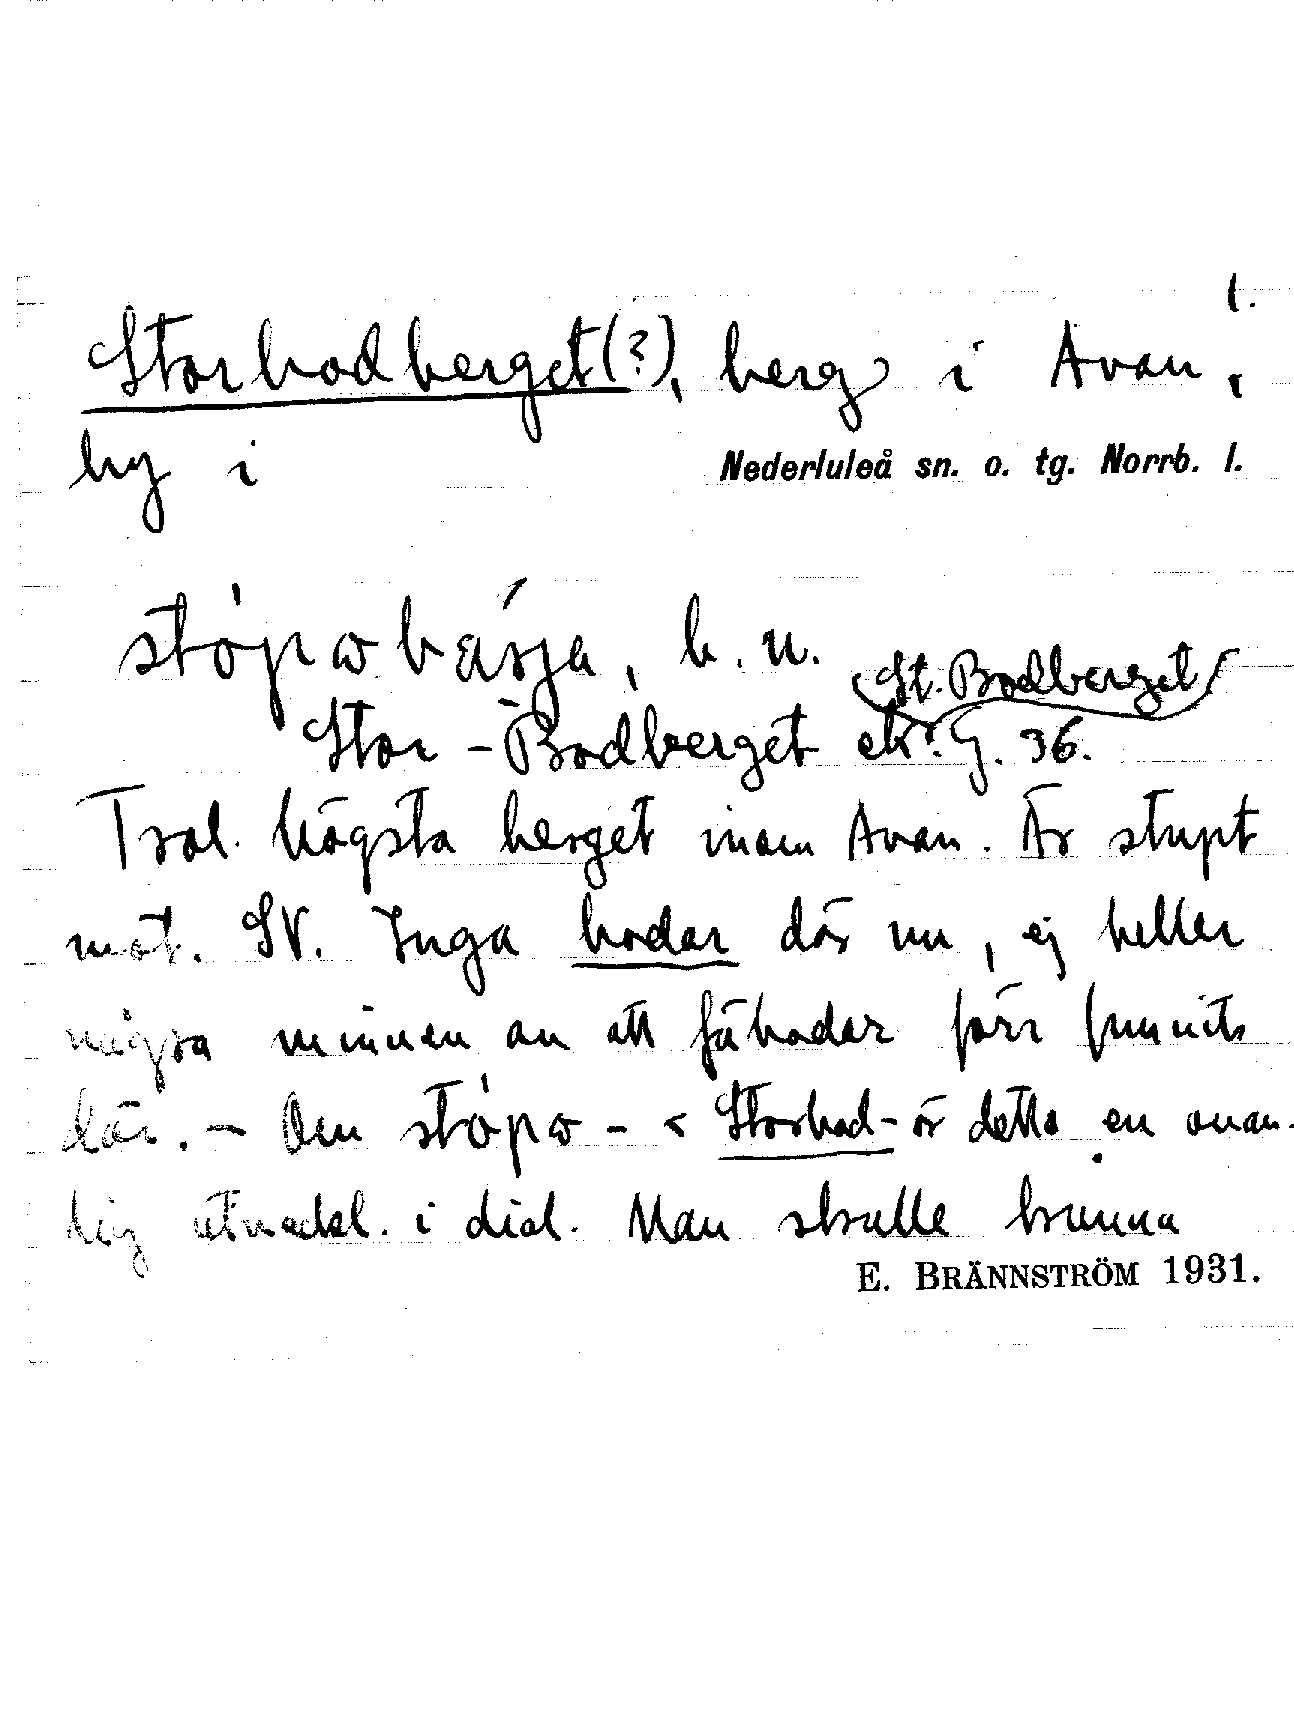 1.
Storbodberget(?), berg i Avan,
by i Nederluleå sn. o. tg. Norrb. l.
stópωbásja, b. n.
(St. Bodberget)
Stor-Bodberget ek. G. 36.
Trol. högsta berget inom Avan. Är stupt
mot. SV. Inga bodar där nu, ej heller
några minnen av att fäbodar förr funnits
där. – Om stópω- < Storbod- är detta en ovan-
lig utveckl. i dial. Man skulle kunna
E. BRÄNNSTRÖM 1931.